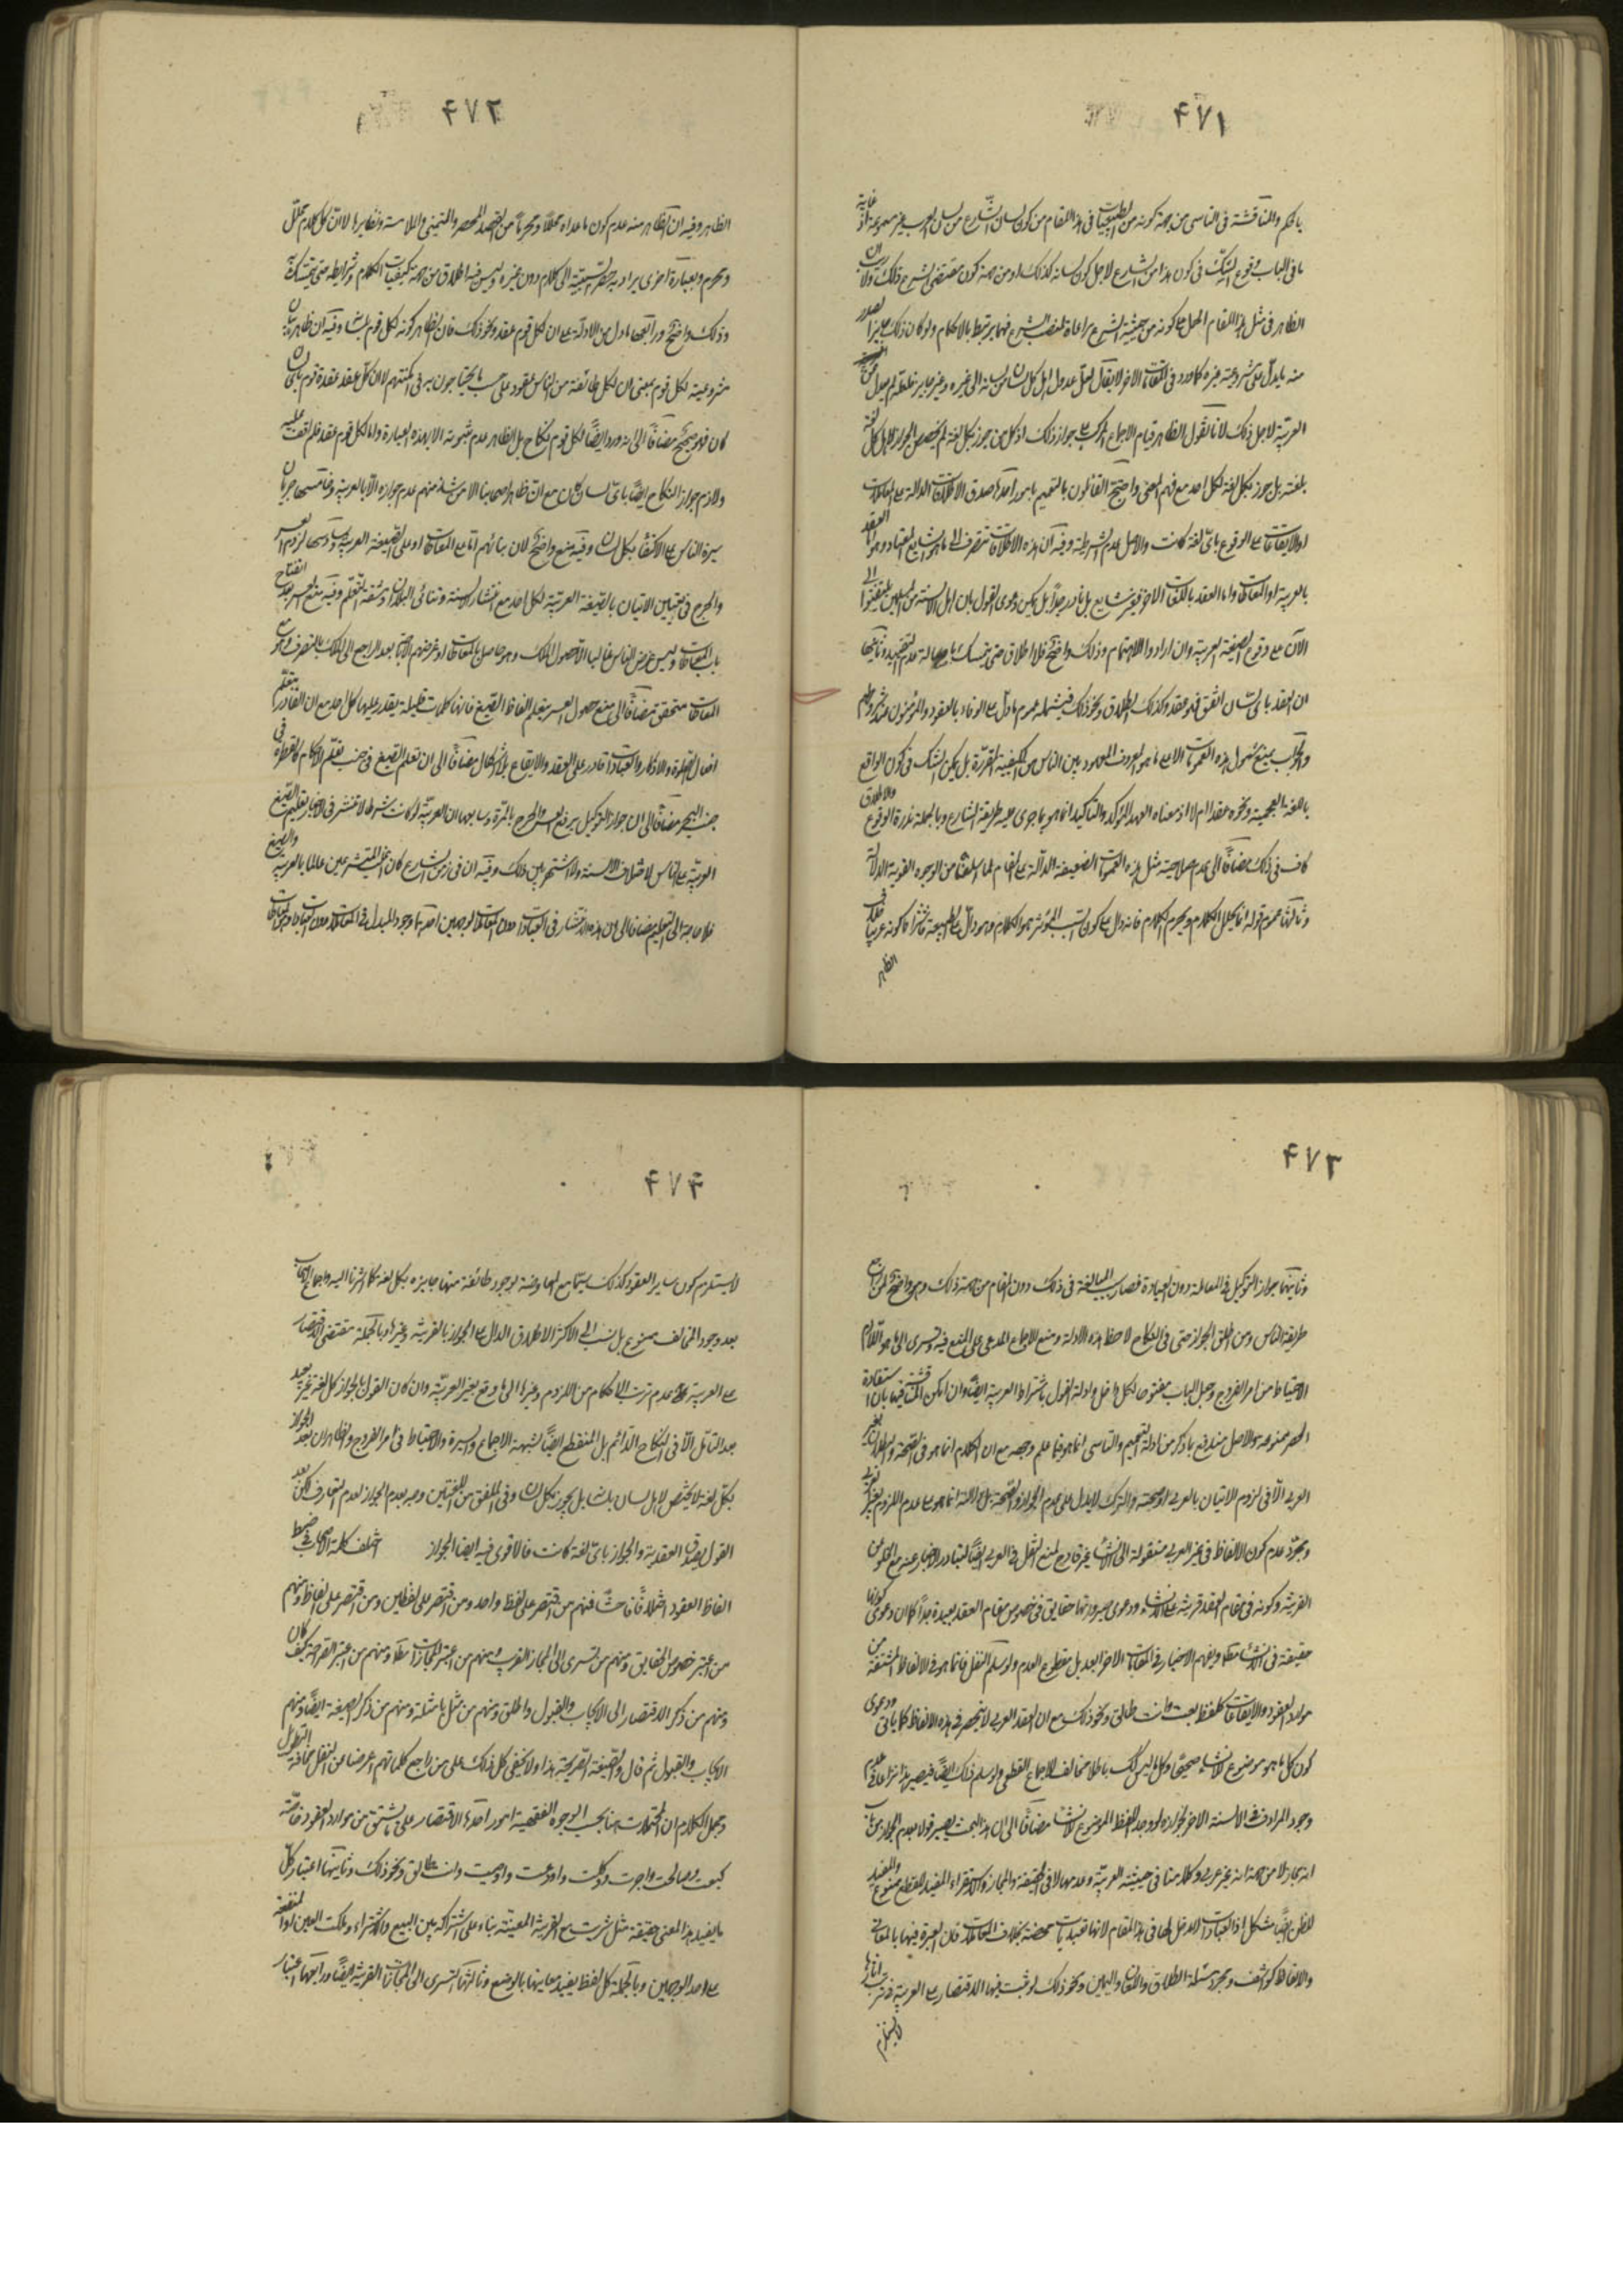 ۴۷۱
بالحكم والمناقشة فى التاسى من جهة كونه من الطبيعيات فى هذا المقام من كون لسان الشارع من لسان العرب غير مسموعة اذ غاية
ما فى الباب وقوع الشك فى كون هذا من الشارع لاجل كون لسانه كذلك او من جهة كون مقتضى الشرع ذلك ولا
الظاهر فى مثل هذا المقام الحمل على كونه من حيثية الشرع مراعاة لمنصب الشرع فيما يرتبط بالاحكام ولو كان ذلك
منه ما يدل على مشروعية غيره كما ورد فى اللغات الاخر لا يقال لعل عدول اهل كل لسان من لسانه الى غيره
العربية لاجل ذلك لانا نقول الظاهر قيام الاجماع المركب على جواز ذلك اذ كل من جوز بكل لغة لم يخصص الجواز لاهل كل لغة
بلغته بل جوز بكل لغة لكل احد مع فهم المعنى واحتج القائلون بالتعميم بامور احدها صدق الاطلاقات الدالة على المعاملات
او الايقاعات على الوقوع باى لغة كانت والاصل عدم الشرطية وفيه ان هذه الاطلاقات تنصرف الى ما هو الشايع المعتاد وهو العقد
بالعربية او المعاطات واما العقد باللغات الاخر فغير شايع بل نادر جدا بل يمكن دعوى القول بان اهل الالسنة من المسلمين
الآن على وقوع الصيغة العربية وان ارادوا الاهتمام وذلك واضح فلا اطلاق حتى يتمسك باصالة عدم التقييد وثانيها
ان العقد باى لسان اتفق فهو عقد وكذلك الطلاق ونحو ذلك فيشمله عموم ما دل على الوفاء بالعقود والمؤمنون عند شروطهم
والجواب بمنع شمول هذه العمومات الا على ما هو المعروف المعهود بين الناس من الكيفية المقررة بل يمكن الشك فى كون الواقع
باللغة العجمية ونحوه عقدا ام لا اذ معناه العهد المؤكد والتاكيد انما هو بما جرى عليه طريقة الشارع وبالجملة ندرة الوقوع والاطلاق
كاف فى ذلك مضافا الى عدم صلاحية مثل هذه العمومات الضعيفة الدالة على المقام لما اسلفنا من الوجوه القوية الدلالة
وثالثها عموم قوله انما يحلل الكلام ويحرم الكلام فانه دال على كون السبب المؤثر هو الكلام وهو دال على الطبيعة
الظاهر
۴۷۲
الظاهر وفيه ان الظاهر منه عدم كون ما عداه محللا ومحرما من القصد المحض والتمنى والملامسة ونظايرها لا ان كل كلام محلل
ومحرم وبعبارة اخرى يراد به حصر السببية الى الكلام دون غيره وليس فيه اطلاق من جهة كيفيات الكلام وشرايطه حتى يتمسك به
وذلك واضح ورابعها ما دل من الادلة على ان لكل قوم عقد ونحو ذلك فان الظاهر كونه لكل قوم بلسانه وفيه ان ظاهره بيان
مشروعية لكل قوم بمعنى ان لكل طائفة من الناس عقود على حسب ما يحتاجون به فى امكنتهم لا ان كل عقد عقده قوم باى لسان
كان فهو صحيح مضافا الى انه ورد ايضا لكل قوم نكاح بل الظاهر عدم ثبوته الا بهذه العبارة واما لكل قوم عقد فلم اقف عليه
ولازم جواز النكاح ايضا باى لسان كان مع ان ظاهر اصحابنا الا من شذ منهم عدم جوازه الا بالعربية وخامسها جريان
سيرة الناس على الاكتفاء بكل لسان وفيه منع واضح لان بنائهم اما على المعاطات او على الصيغة العربية وسادسها لزوم العسر
والحرج فى تعيين الاتيان بالصيغة العربية لكل احد مع انتشار الالسنة وتنائى البلدان ومشقة التعلم وفيه منع العسر بعد انفتاح
باب المعاطات وليس غرض الناس غالبا الا حصول الملك وهو حاصل بالمعاطات
المعاطات متحقق مضافا الى منع حصول العسر بتعلم الفاظ الصيغ فانها كلمات قليلة يقدر عليها كل احد مع ان القادر بتعلم
افعال الصلوة والاذكار والعبادات قادر على العقد والايقاع بلا اشكال مضافا الى ان تعلم الصيغ فى جنب تعلم الاحكام كالقطرة فى
جنب البحر مضافا الى ان جواز التوكيل يرفع العسر والحرج بالمرة وسابعها ان العربية لو كانت شرطا لانتشر فى الاخبار تعليم الصيغ
العربية على الناس لاختلاف الالسنة ولاشتهر بين ذلك وفيه ان فى زمن الشارع كان اغلب المتشرعين عالما بالعربية والصيغ
فلا حاجة الى التعليم مضافا الى ان هذا الانتشار فى العبادات دون المعاملات لوجهين احدهما وجود المبدل فى المعاملات دون العبادات وهو المعاطات
۴۷۳
وثانيهما جواز التوكيل فى المعاملة دون العبادة فصار سبب المبالغة فى ذلك دون المقام من جهة ذلك وهو واضح لمن راجع
طريقة الناس ومن اطلق الجواز حتى فى النكاح لاحظ هذه الادلة ومنع الاجماع المدعى على المنع فيه وتسرى الى ما هو اللازم
الاحتياط من امر الفروج وجعل الباب مفتوحا لكل داخل وادلة القول باشتراط العربية ايضا وان امكن المناقشة فيها بان استفادة
الحصر ممنوعة والاصل مندفع بما ذكر من ادلة التعميم والتاسى انما هو فيما علم وجهه مع ان الكلام انما هو فى الصحة والبطلان بغير
العربى لا فى لزوم الاتيان بالعربى او صحته والترك لا يدل على عدم الجواز والصحة بل دلالته انما هو على عدم اللزوم بغير العربى
ومجرد عدم كون الالفاظ فى غير العربى منقولة الى الانشاء غير قادح لمنع النقل فى العربى ايضا لتبادر الاخبار عنه مع الخلو من
القرينة وكونه فى مقام العقد قرينة على الانشاء ودعوى صيرورتها حقايق فى خصوص مقام العقد بعيدة جدا كما ان دعوى كونها
حقيقة فى الانشاء مطلقا
موارد العقود والايقاعات كلفظ بعت وانت طالق ونحو ذلك مع ان العقد العربى لا ينحصر فى هذه الالفاظ كما ياتى ودعوى
كون كل ما هو موضوع للانشاء صحيحا وكل ما ليس كك باطلا مخالف للاجماع القطعى ولو سلم ذلك ايضا فيصير هذا نزاعا فى عدم
وجود المرادف فى الالسنة الاخر
انه مجاز لا من جهة انه غير عربى وكلامنا فى حيثية العربية وعدمها لا فى الحقيقة والمجاز والاستقراء المفيد للقطع ممنوع والمفيد
للظن ايضا مشكل اذ العبادات لا دخل لها فى هذا المقام لانها تعبديات محضة بخلاف المعاملات فان العبرة فيها بالمعانى
والالفاظ كواشف ومجرد مسئلة الطلاق واللعان واليمين ونحو ذلك لو ثبت فيها الاقتصار على العربية
لا يستلزم
۴۷۴
لا يستلزم كون ساير العقود كذلك سيما مع المعارضة بوجود طائفة منها جايزة بكل لغة كما اشرنا اليه واجماع الاصحاب
بعد وجود المخالف ممنوع بل نسب الى الاكثر الاطلاق الدال على الجواز بالعربية وغيرها وبالجملة مقتضى الاقتصار
على العربية عدم ترتب الاحكام من اللزوم وغيرها الى ما وقع بغير العربية وان كان القول بالجواز بكل لغة غير بعيد
بعد التامل الا فى النكاح الدائم بل المنقطع ايضا لشبهة الاجماع والسيرة والاحتياط فى امر الفروج والظاهر ان بعد الجواز
بكل لغة لا يختص لاهل لسان بلسانه بل يجوز بكل لسان وفى الملفق من اللغتين وجه بعدم الجواز لعدم التعارف لكن بعد
القول بصدق العقدية والجواز باى لغة كانت فالاقوى فيه ايضا الجواز اختلف كلمة الاصحاب فى ضبط
الفاظ العقود اختلافا فاحشا فمنهم من اقتصر على لفظ واحد ومن اقتصر على لفظين ومن اقتصر على الفاظ ومنهم
من اعتبر خصوص الحقايق ومنهم من تسرى الى المجاز القريب ومنهم من اعتبر المجازات مطلقا ومنهم من اعتبر الصراحة كيف كان
ومنهم من ذكر الاقتصار الى الايجاب والقبول واطلق ومنهم من مثل بامثلة ومنهم من ذكر الصيغة ايضا ومنهم
الايجاب والقبول ثم قال والصيغة الصريحة هذا ولا يخفى كل ذلك على من راجع كلماتهم واعرضنا عن النقل مخافة التطويل
وجعل الكلام ان المحتملات هنا بحسب الوجوه الفقهية امور احدها الاقتصار على ما يشتق من موارد العقود خاصة
كبعت وصالحت واجرت ووكلت واودعت واوصيت وانت طالق ونحو ذلك وثانيها اعتبار كل
ما يفيد هذا المعنى حقيقة مثل شريت مع القرينة المعينة بناء على اشتراكه بين البيع والاشتراء وملكت العين او المنفعة
على احد الوجهين وبالجملة كل لفظ يفيد معاينها بالوضع وثالثها التسرى الى المجازات القريبة ايضا ورابعها اعتبار